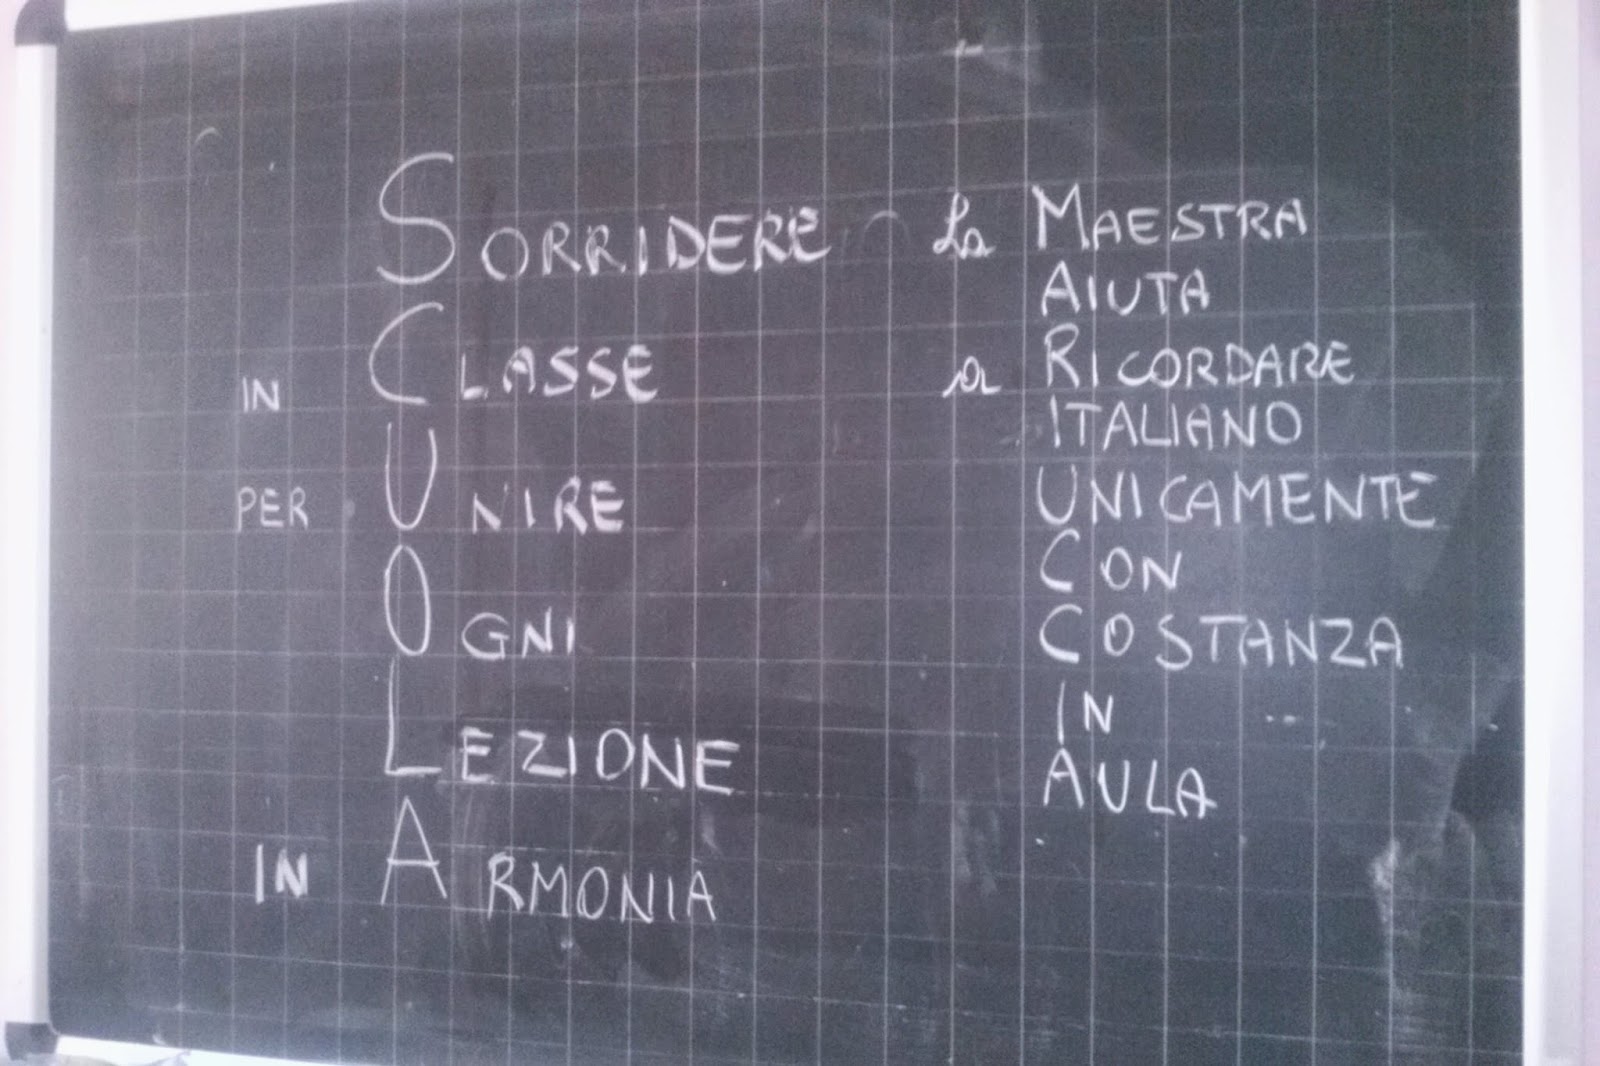 SORRIDERE
IN CLASSE
PER UNIRE
OGNI
LEZIONE
IN ARMONIA
La MAESTRA
AIUTA
a RICORDARE
ITALIANO
UNICAMENTE
CON
COSTANZA
IN
AULA